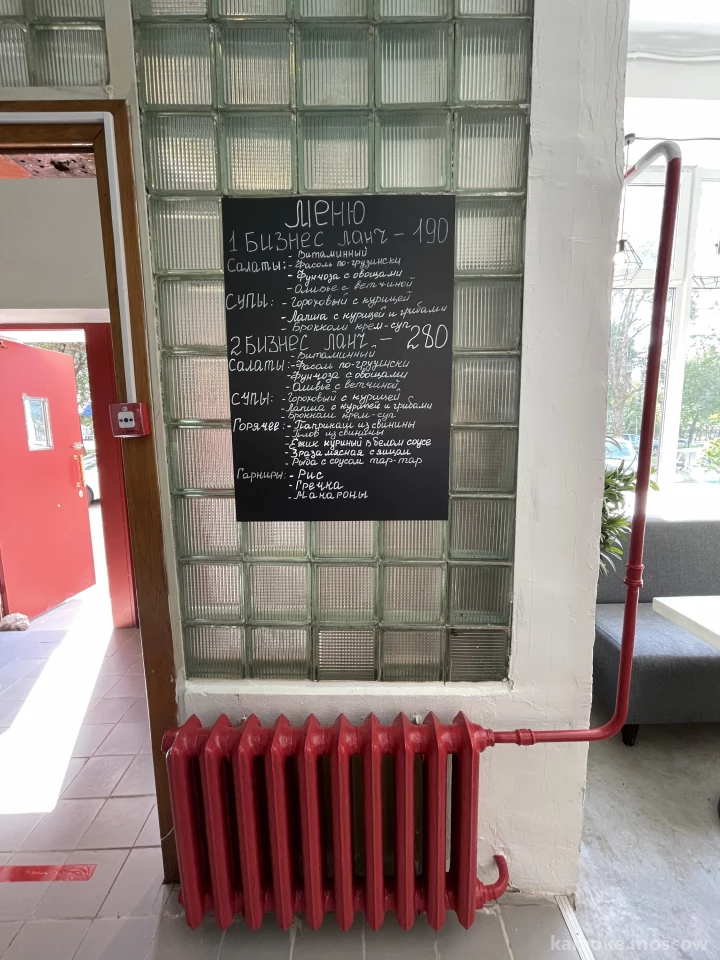 Меню
1 Бизнес ланч - 190
- Витаминный
Салаты: - Фасоль по-грузински
- Фунчоза с овощами
- Оливье с ветчиной
Супы: - Гороховый с курицей
- Лапша с курицей и грибами
- Брокколи крем-суп
2 Бизнес ланч. - 280
- Витаминный
Салаты: - Фасоль по-грузински
- Фунчоза с овощами
- Оливье с ветчиной
Супы: - Гороховый с курицей
- Лапша с курицей и грибами
- Брокколи крем-суп
Горячее: - Паприкаш из свинины
- Плов из свинины
- Ёжик куриный в белом соусе
- Зраза мясная с яйцом
- Рыба с соусом тар-тар
Гарниры: - Рис
- Гречка
- Макароны
karaoke.moscow